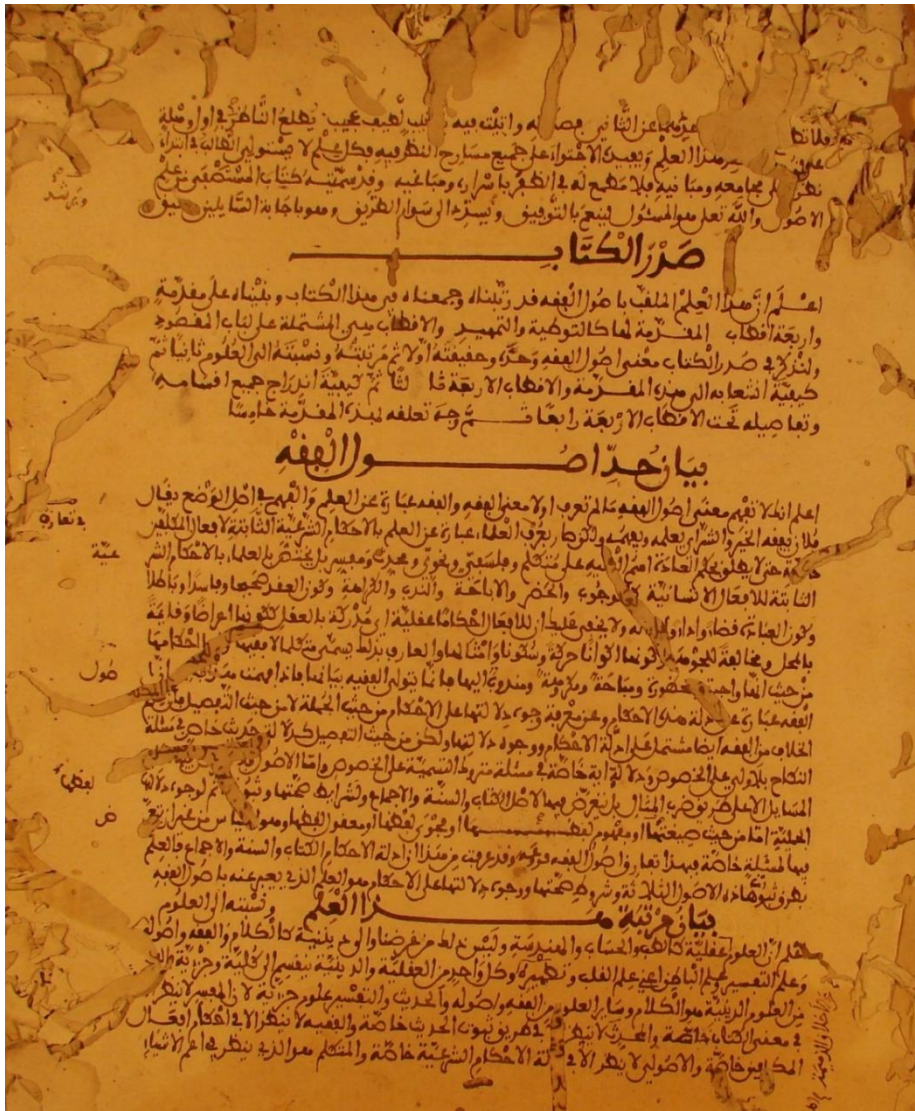 عن الثاني فصار وأتيت فيه بترتيب لطيف عجيب يطلع الناظر في أول وهلة
على هذا العلم ويفيد الاحتواء على جميع مسارح النظر فيه فكل علم لا يستولي الطالب في ابتداء
نظره على مجامعه ومبانيه فلا مطمع له في الظفر بأسراره ومباغيه وقد سميته كتاب المستصفى من علم
الأصول والله تعالى هو المسئول لينعم بالتوفيق ويسدد إلى سواء الطريق وهو بإجابة السائلين حقيق
صدر الكتاب
اعلم أن هذا العلم الملقب بأصول الفقه قد رتبناه وجمعناه في هذا الكتاب وبنيناه على مقدمة
وأربعة أقطاب المقدمة لها كالتوطية والتمهيد والأقطاب هي المشتملة على لباب المقصود
ولنذكر في صدر الكتاب معنى أصول الفقه وحده وحقيقته أولا ثم مرتبته ونسبته إلى العلوم ثانيا ثم
كيفية انشعابه إلى هذه المقدمة والأقطاب الأربعة ثالثا ثم كيفية اندراج جميع أقسامه
وتفاصيله تحت الأقطاب الأربعة رابعا ثم وجه تعلقه بهذه المقدمة خامسا
بيان حد أصول الفقه
اعلم أنك لا تفهم معنى أصول الفقه ما لم تعرف أولا معنى الفقه والفقه عبارة عن العلم والفهم في أصل الوضع يقال
فلان يفقه الخير والشر أي يعلمه ويفهمه ولكن صار بعرف العلماء عبارة عن العلم بالأحكام الشرعية الثابتة لأفعال المكلفين
خاصة حتى لا يطلق بحكم العادة اسم الفقيه على متكلم وفلسفي ونحوي ومحدث ومفسر بل يختص بالعلماء بالأحكام الشر
عية
الثابتة للأفعال الإنسانية كالوجوب والحضر والإباحة والندب والكراهة وكون العقد صحيحا وفاسدا وباطلا
وكون العبادة قضاء وأداء وأمثاله ولا يخفى عليك أن للأفعال أحكاما عقلية أي مدركة بالعقل ككونها أعراضا وقائمة
بالمحل ومخالفة للجوهر وكونها أكوانا حركة وسكونا وأمثالها والعارف بذلك يسمى متكلما لا فقيها وأما أحكامها
من حيث أنها واجبة ومحضورة ومباحة ومكروهة ومندوب إليها فإنما يتولى الفقيه بيانها فإذا فهمت هذا
الفقه عبارة عن أدلة هذه الأحكام وعن معرفة وجوه دلالتها على الأحكام من حيث الجملة لا من حيث التفصيل فإن علم
الخلاف من الفقه أيضا مشتمل على أدلة الأحكام ووجوه دلالتها ولكن من حيث التفصيل كدلالة حديث خاص في مسئلة
النكاح بلا ولي على الخصوص ودلالة آية خاصة في مسئلة متروك التسمية على الخصوص وأما الأصول
المسايل لا على طريق ضرب المثال بل يتعرض فيها لأصل الكتاب والسنة والإجماع ولشرايط صحتها وثبوتها ثم لوجوه دلالتها
الجملية إما من حيث صيغتها أو مفهوم لفظها أو مجرى لفظها أو معقول لفظها وهو القياس من غير أن يتعرض
فيها لمسئلة خاصة فبهذا تفارق أصول الفقه فروعه وقد عرفت من هذا أن أدلة الأحكام الكتاب والسنة والإجماع فالعلم
بطرق ثبوت هذه الأصول الثلاثة وشروط صحتها ووجوه دلالتها على الأحكام هو العلم الذي يعبر عنه بأصول الفقه
بيان مرتبة هذا العلم ونسبته إلى العلوم
اعلم أن العلوم عقلية كالطب والحساب والهندسة وليس ذلك من غرضنا وإلى دينية كالكلام والفقه وأصوله
وعلم التفسير وعلم الباطن أعني علم القلب وتطهيره وكل واحد من العقلية والدينية ينقسم إلى كلية وجزئية
من العلوم الدينية هو الكلام وساير العلوم من الفقه وأصوله والحديث والتفسير علوم جزئية لأن المفسر لا ينظر إلا
في معنى الكتاب خاصة والمحدث لا ينظر إلا في طريق ثبوت الحديث خاصة والفقيه لا ينظر إلا في أحكام أفعال
المكلفين خاصة والأصولي لا ينظر إلا في أدلة الأحكام الشرعية خاصة والمتكلم هو الذي ينظر في أعم الأشياء